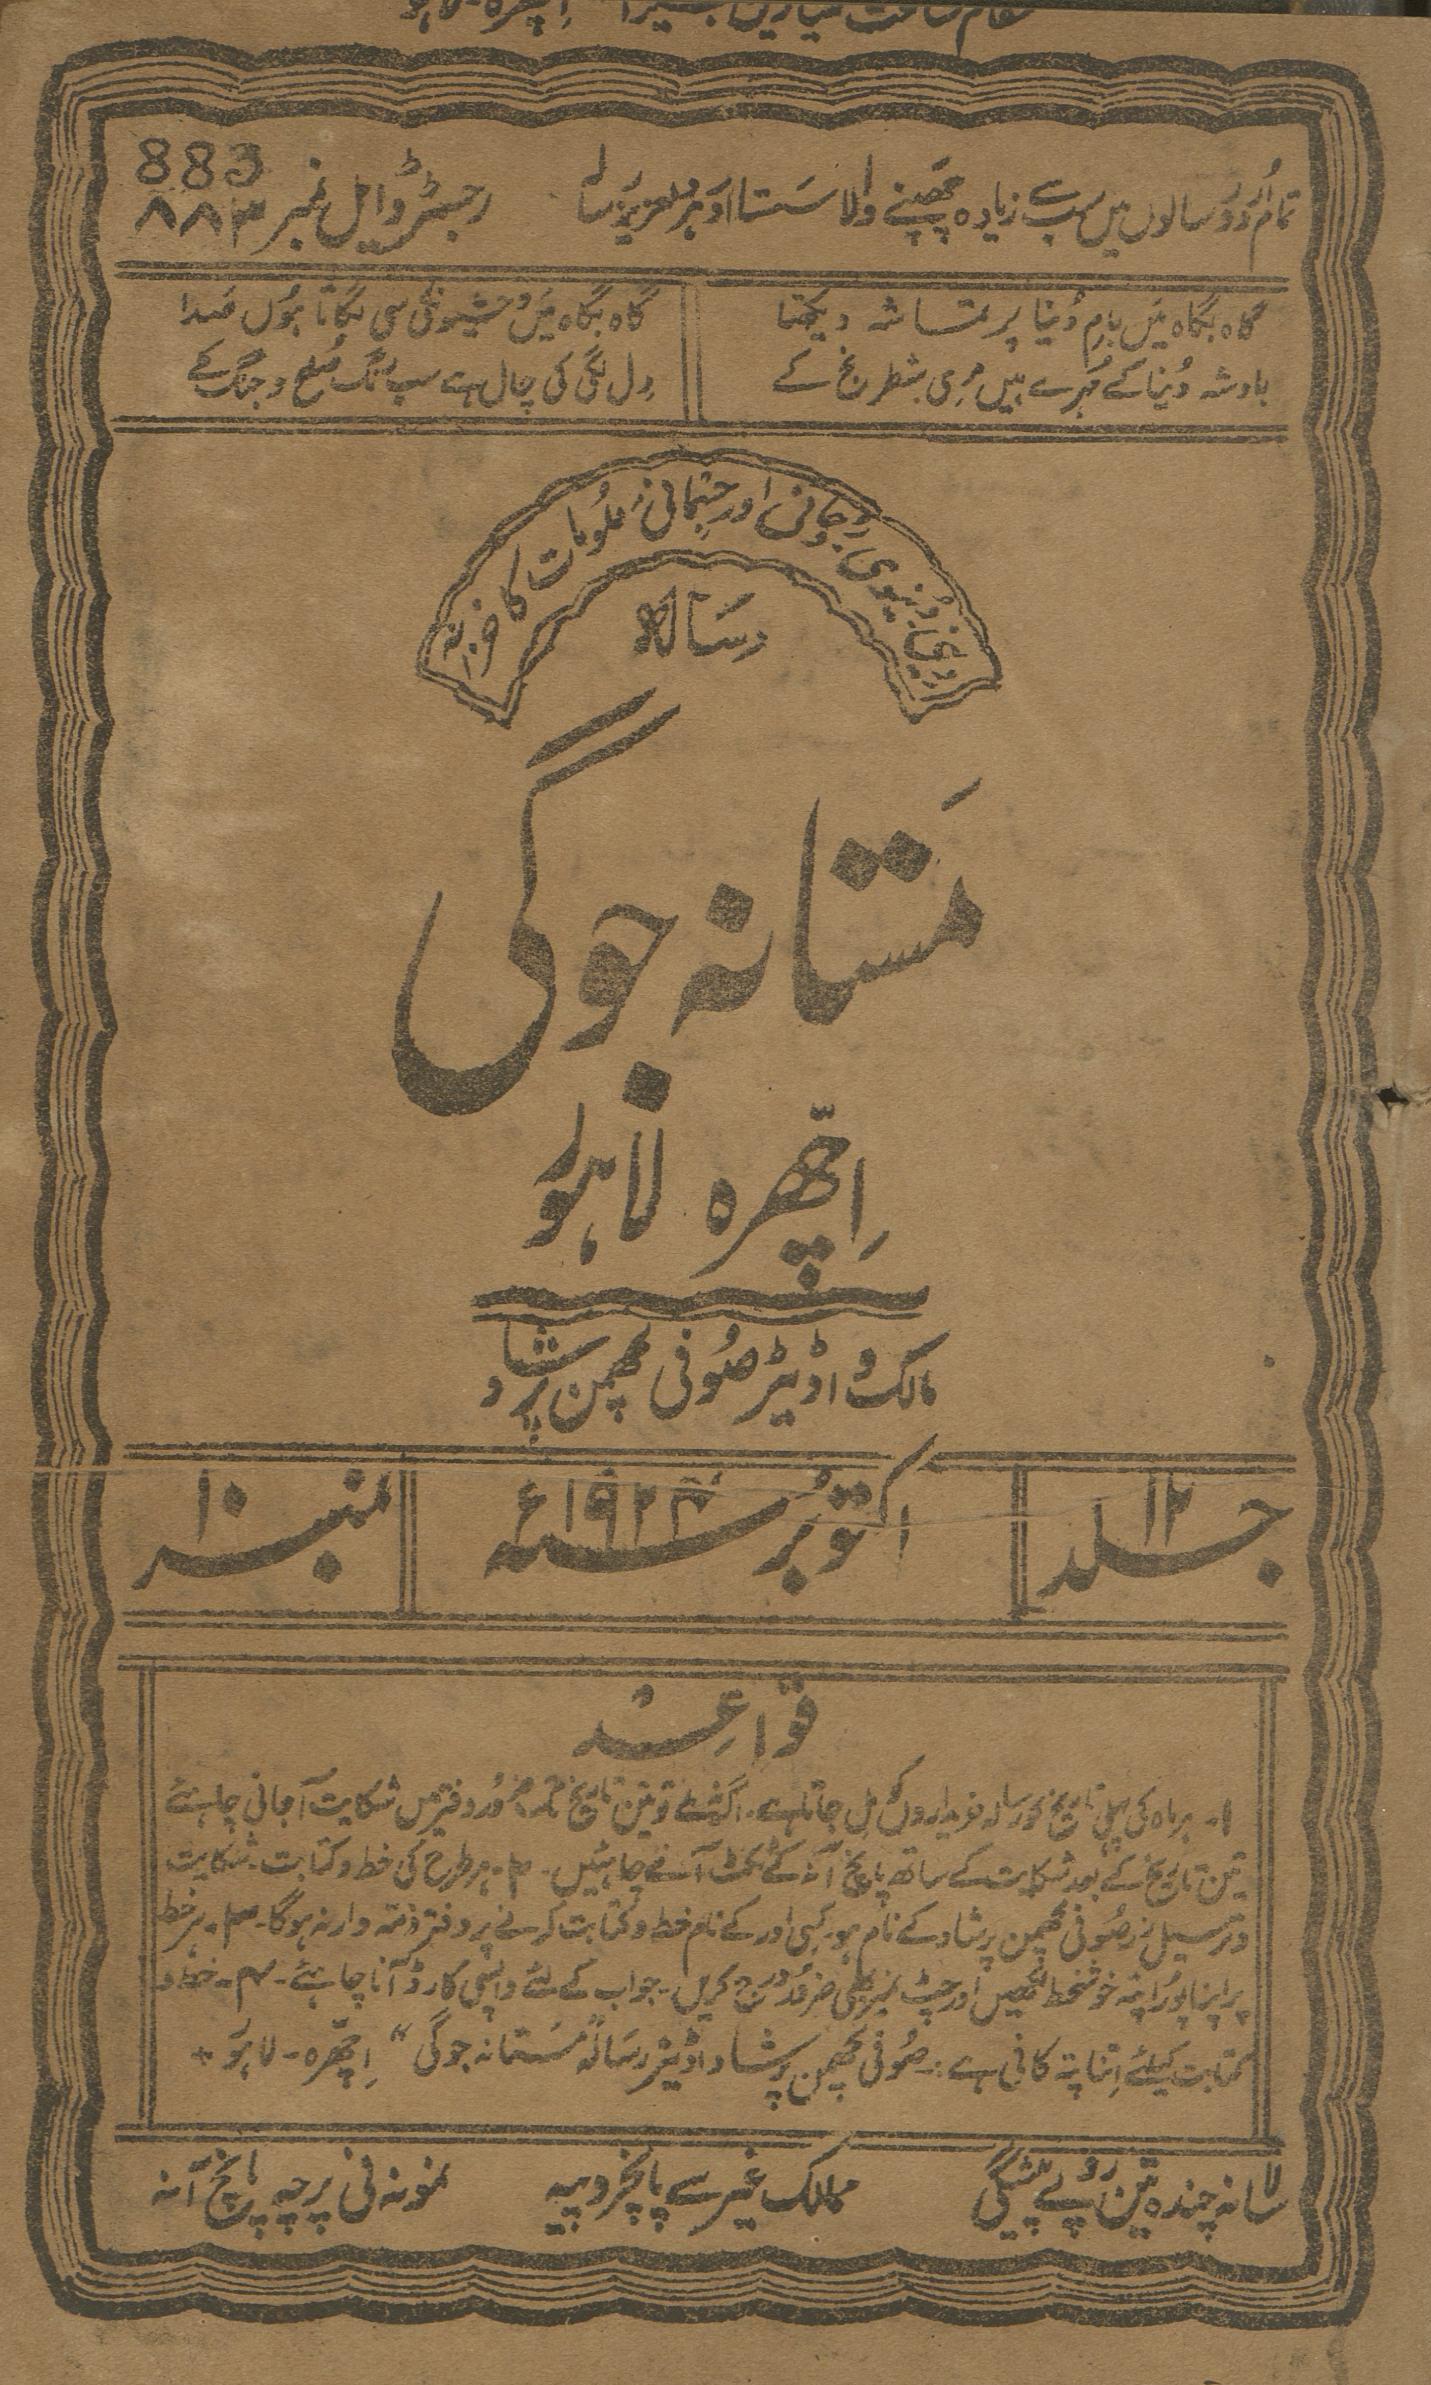 تمام اُردو رسالوں میں سب سے زیادہ چھپنے والا سستا اور ہر دلعزیز رسالہ
رجسٹرڈ ایل نمبر ۸۸۳
883
گاہ بگاہ میں بامِ دُنیا پر تماشہ دیکھتا
گاہ بگاہ میں وحشیوں کی سی لگاتا ہوں صدا
بادشہ دُنیا کے مُہرے ہیں مری شطرنج کے
دِل لگی کی چال ہے سب رنگ صُلح و جنگ کے
دینی دُنیوی روحانی اور جسمانی معلومات کا خزانہ
رسالہ
مَستانہ جوگی
اِچھّرہ لاہور
مالک و اڈیٹر صُوفی لچھمن پرشاد
جلد ۱۲
اکتوبر ۱۹۲۴ء
نمبر ۱۰
قواعِد
۱۔ ہر ماہ کی پہلی تاریخ کو رسالہ خریداروں کو مِل جاتا ہے۔ اگر نہ ملے تو تین تاریخ تک ضرور دفتر میں شکایت آجانی چاہئے
تین تاریخ کے بعد شکایت کے ساتھ پانچ آنہ کے ٹکٹ آنے چاہئیں۔ ۲۔ ہر طرح کی خط و کتابت۔ شکایت
و ترسیل زر صُوفی لچھمن پرشاد کے نام ہو۔ کِسی اور کے نام خط و کتابت کرنے پر دفتر ذمّہ وار نہ ہوگا۔ ۳۔ ہر خط
پر اپنا پُورا پتہ خوشخط لکھیں اور چِٹ نمبر بھی ضرور درج کریں۔ جواب کے لئے واپسی کارڈ آنا چاہئے۔ ۴۔ خط و
کتابت کیلئے اِتنا پتہ کافی ہے:۔ صُوفی لچھمن پرشاد اڈیٹر رسالہ "مَستانہ جوگی" اِچھّرہ۔ لاہور +
سالانہ چندہ تین روپے پیشگی
ممالک غیر سے پانچروپیہ
نمونہ فی پرچہ پانچ آنہ